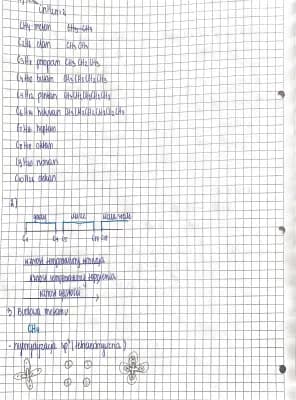 CnH2n+2
CH4 metan CH3-CH3
C2H6 etan CH3 CH3
C3H8 propan CH3 CH2 CH3
C4H10 butan CH3 CH2 CH2 CH3
C5H12 pentan CH3 CH2 CH2 CH2 CH3
C6H14 heksan CH3 CH2 CH2 CH2 CH2 CH3
C7H16 heptan
C8H18 oktan
C9H20 nonan
C10H22 dekan
2)
gazy ciecz ciała stałe
C1 C4 C5
wzrost temperatury wrzenia
wzrost temperatury topnienia
wzrost gęstości
3) Budowa metanu
CH4
- hybrydyzacja sp3 (tetraedryczna)